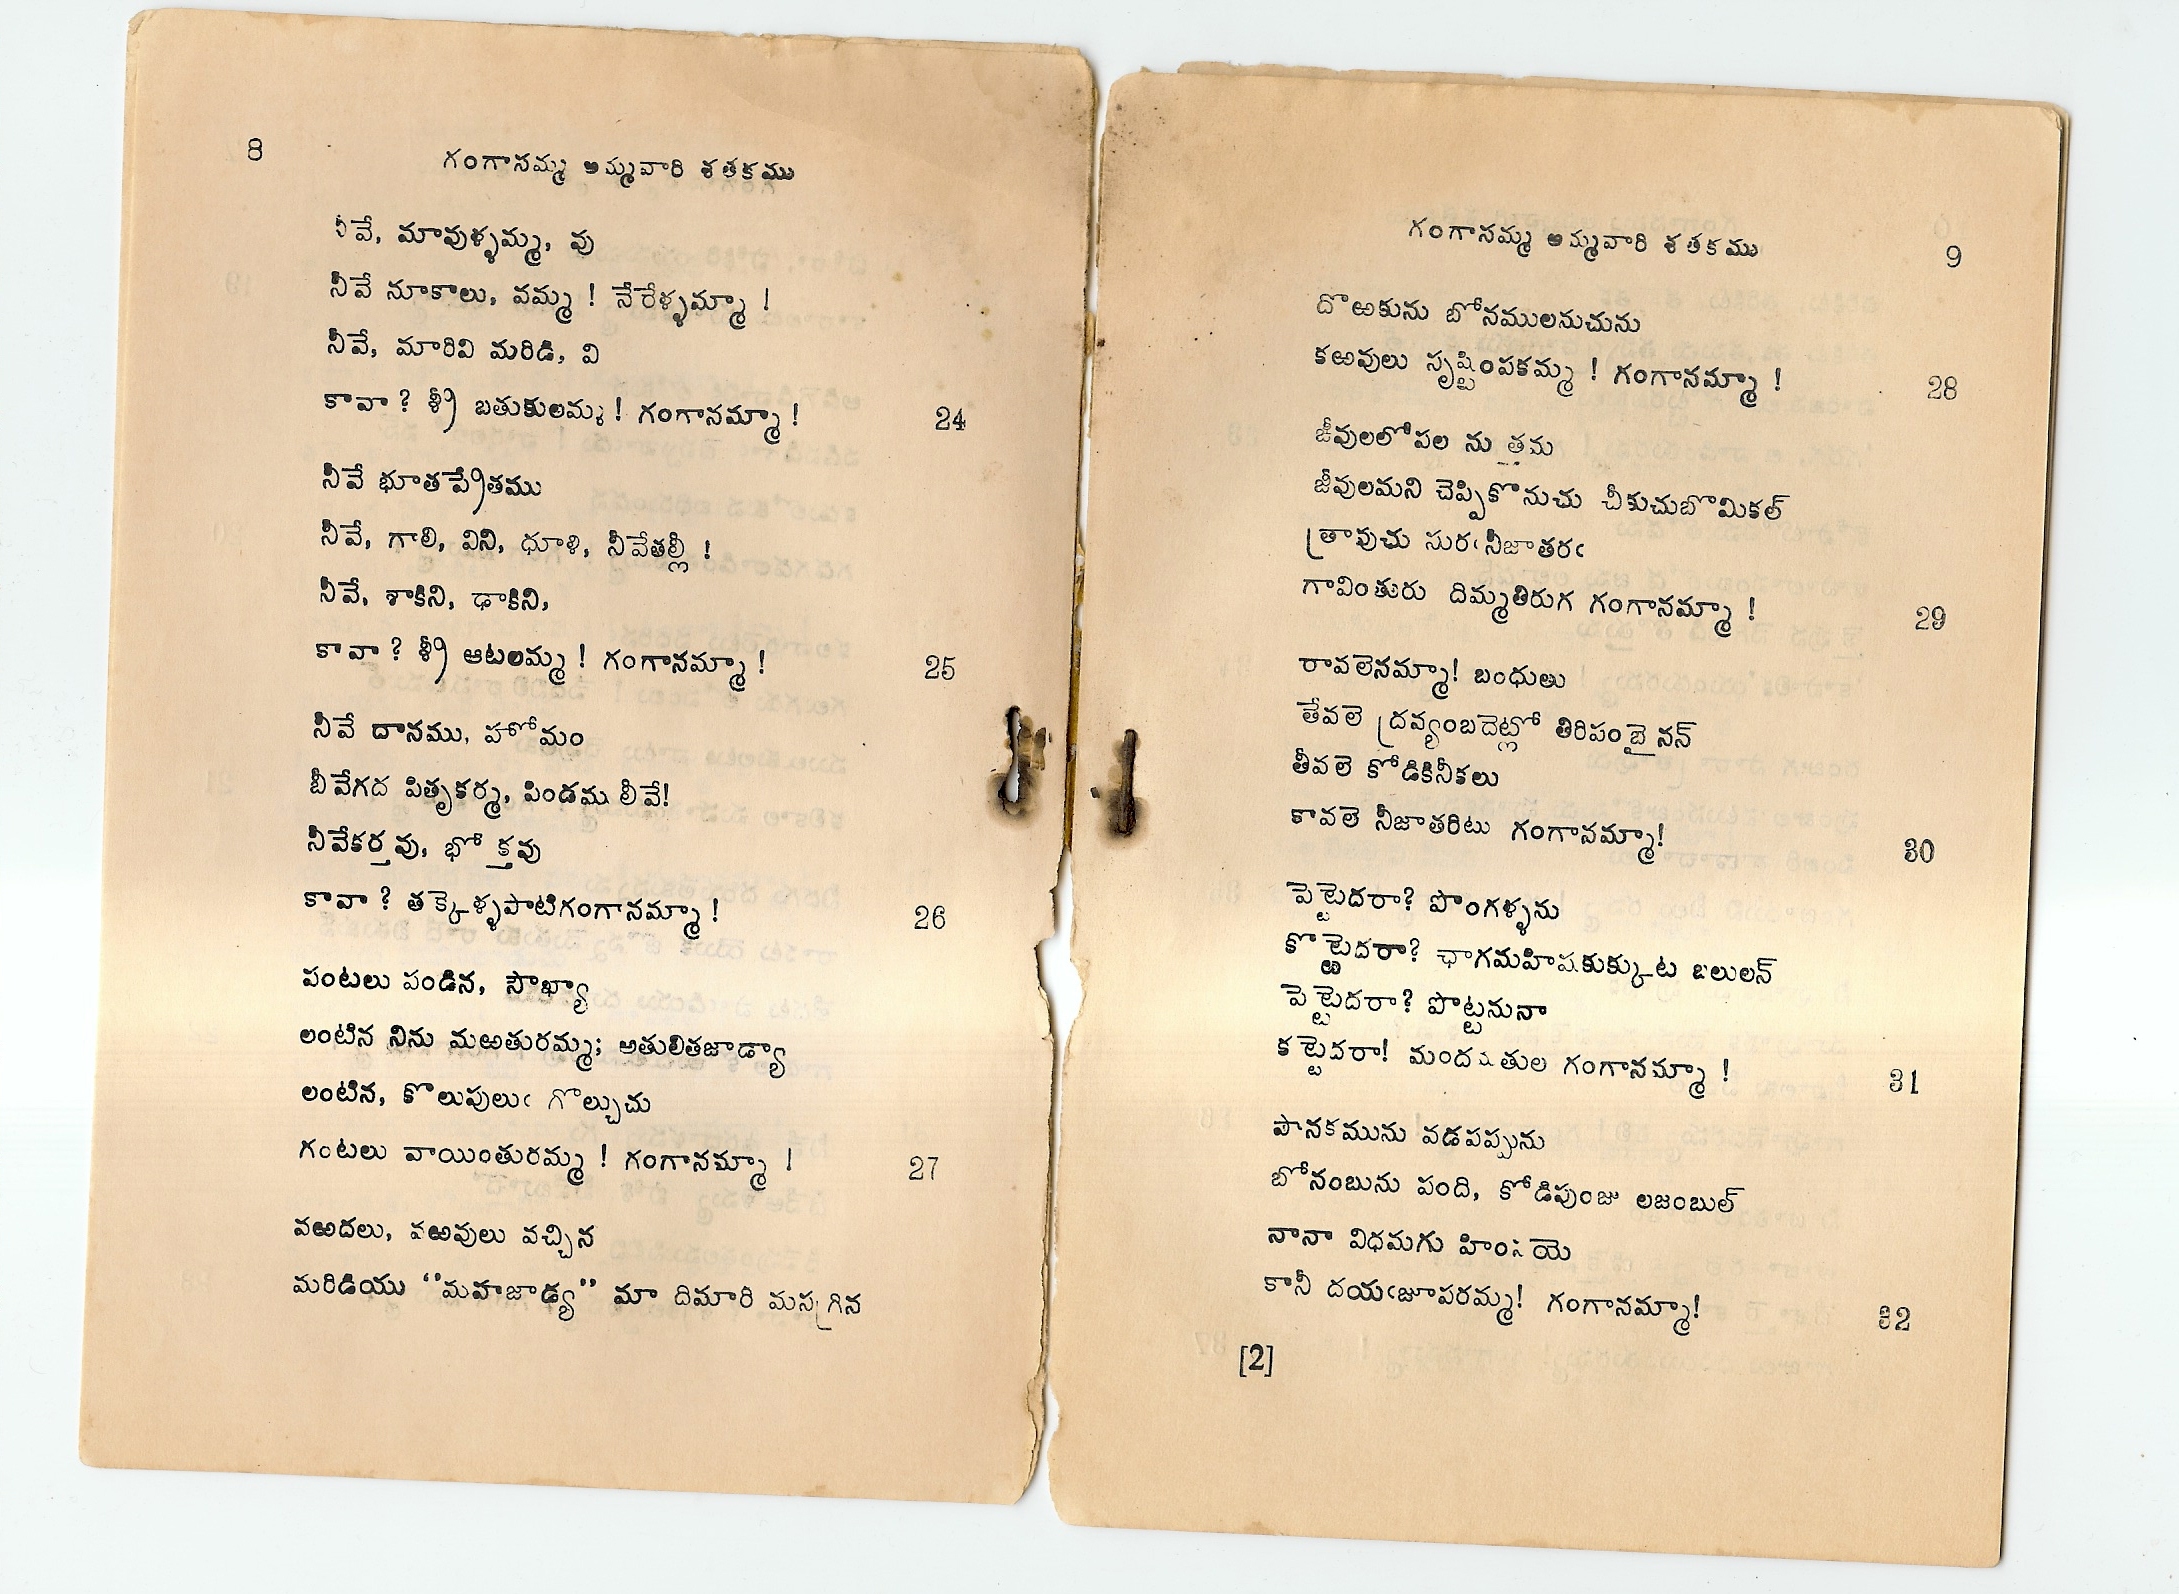 8
గంగానమ్మ అమ్మవారి శతకము
నీవే, మావుళ్ళమ్మ, వు
నీవే నూకాలు, వమ్మ ! నేరేళ్ళమ్మా !
నీవే, మారివి మరిడి, వి
కావా ? శ్రీ బతుకులమ్మ ! గంగానమ్మా ! 24
నీవే భూతప్రేతము
నీవే, గాలి, విని, ధూళి, నీవేతల్లీ !
నీవే, శాకిని, ఢాకిని,
కావా ? శ్రీ ఆటలమ్మ ! గంగానమ్మా ! 25
నీవే దానము, హోమం
బీవేగద పితృకర్మ, పిండము లీవే!
నీవేకర్తవు, భోక్తవు
కావా ? తక్కెళ్ళపాటిగంగానమ్మా ! 26
పంటలు పండిన, సౌఖ్యా
లంటిన నిను మఱతురమ్మ; అతులితజాడ్యా
లంటిన, కొలుపులుఁ గొల్చుచు
గంటలు వాయింతురమ్మ ! గంగానమ్మా ! 27
వఱదలు, వఱవులు వచ్చిన
మరిడియు "మహజాడ్య" మా దిమారి మసగ్రిన
గంగానమ్మ అమ్మవారి శతకము
9
దొఱకును బోనములనుచును
కఱవులు సృష్టింపకమ్మ ! గంగానమ్మా ! 28
జీవులలోపల నుత్తమ
జీవులమని చెప్పికొనుచు చీకుచుబొమికల్
త్రావుచు సురఁనీజాతరఁ
గావింతురు దిమ్మతిరుగ గంగానమ్మా ! 29
రావలెనమ్మా! బంధులు
తేవలె ద్రవ్యంబదెట్లో తిరిపంబైనన్
తీవలె కోడికినీకలు
కావలె నీజాతరిటు గంగానమ్మా! 30
పెట్టెదరా? పొంగళ్ళను
కొట్టెదరా? ఛాగమహిషకుక్కుట బలులన్
పెట్టెదరా? పొట్టనునా
కట్టెదరా! మంద తుల గంగానమ్మా ! 31
పానకమును వడపప్పును
బోనంబును పంది, కోడిపుంజు లజంబుల్
నానా విధమగు హింసయె
కానీ దయఁజూపరమ్మ! గంగానమ్మా! 32
[2]